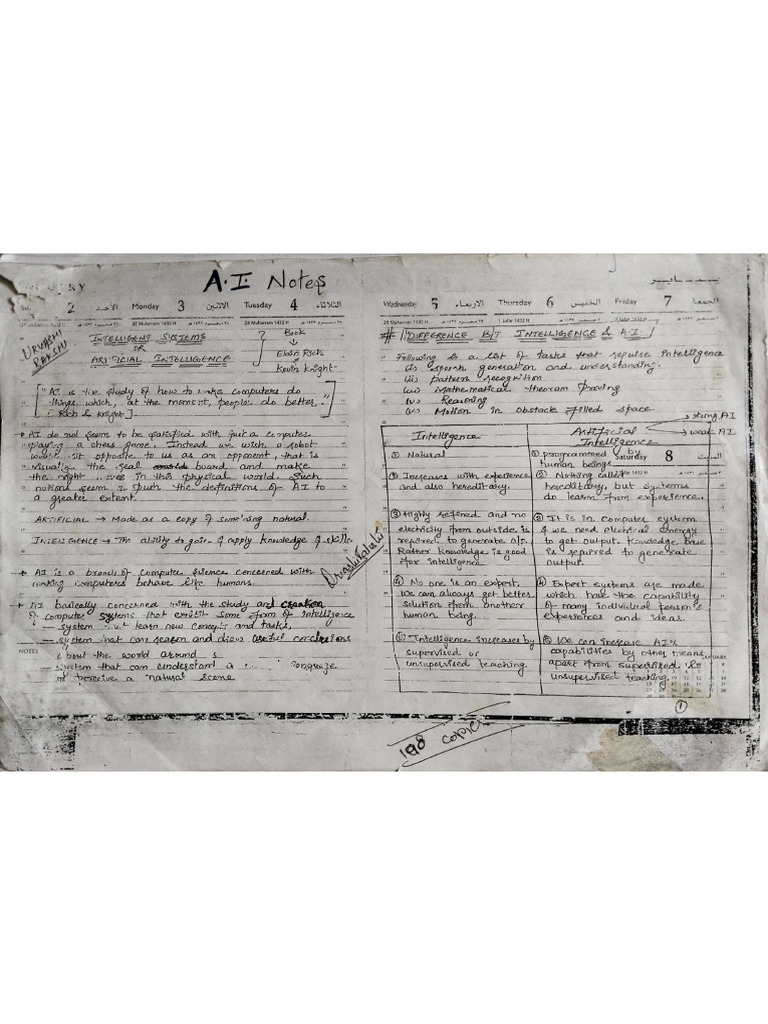 A.I. Notes
2 الاحد Monday 3 الاثنين Tuesday 4 الثلاثاء
28 Muharram 1432 H
URVASHI
BAKSHI
INTELLIGENT SYSTEMS
OR
ARTIFICIAL INTELLIGENCE
Book
↓
Elain Rich
Kevin Knight
["AI is the study of how to make computers do
things which, at the moment, people do better."
: Rich & Knight].
→ AI do not seem to be satisfied with just a computer
playing a chess game. Instead we wish a robot
sit opposite to us as an opponent, that is
visualize the real board and make
the right in this physical world. Such
notions seem to push the definitions of AI to
a greater extent.
ARTIFICIAL → Made as a copy of something natural.
INTELLIGENCE → The ability to gain & apply knowledge & skills.
→ AI is a branch of computer science concerned with
making computers behave like humans.
→ AI basically concerned with the study and creation
of computer systems that exhibit some form of intelligence
— system that learn new concepts and tasks,
— system that can reason and draw useful conclusions
about the world around us
system that can understand a language
or perceive a natural scene
NOTES
Wednesday 5 الاربعاء Thursday 6 الخميس Friday 7 الجمعة
29 Muharram 1432 H 1 Safar 1432 H
# DIFFERENCE B/T INTELLIGENCE & A.I
Following is a list of tasks that require intelligence
(i) speech generation and understanding.
(ii) pattern recognition
(iii) Mathematical theorem proving
(iv) Reasoning
(v) Motion in obstacle filled space.
Intelligence
① Natural
② Increases with experience
and also hereditary.
③ Highly refined and no
electricity from outside is
required to generate o/p.
Rather knowledge is good
for intelligence
④ No one is an expert.
We can always get better
solution from another
human being....
⑤ Intelligence increases by
supervised or
unsupervised teaching.
Artificial
Intelligence
→ strong AI
→ weak AI
Saturday 8 السبت
① programmed by
human beings
② Nothing called
hereditary, but systems
do learn from experience.
③ It is in computer system
& we need electrical energy
to get output. Knowledge base
is required to generate
output.
④ Expert systems are made
which have the capability
of many individual person's
experiences and ideas.
⑤ We can increase AI's
capabilities by other means
apart from supervised &
unsupervised teaching
JANUARY
①
198 copies